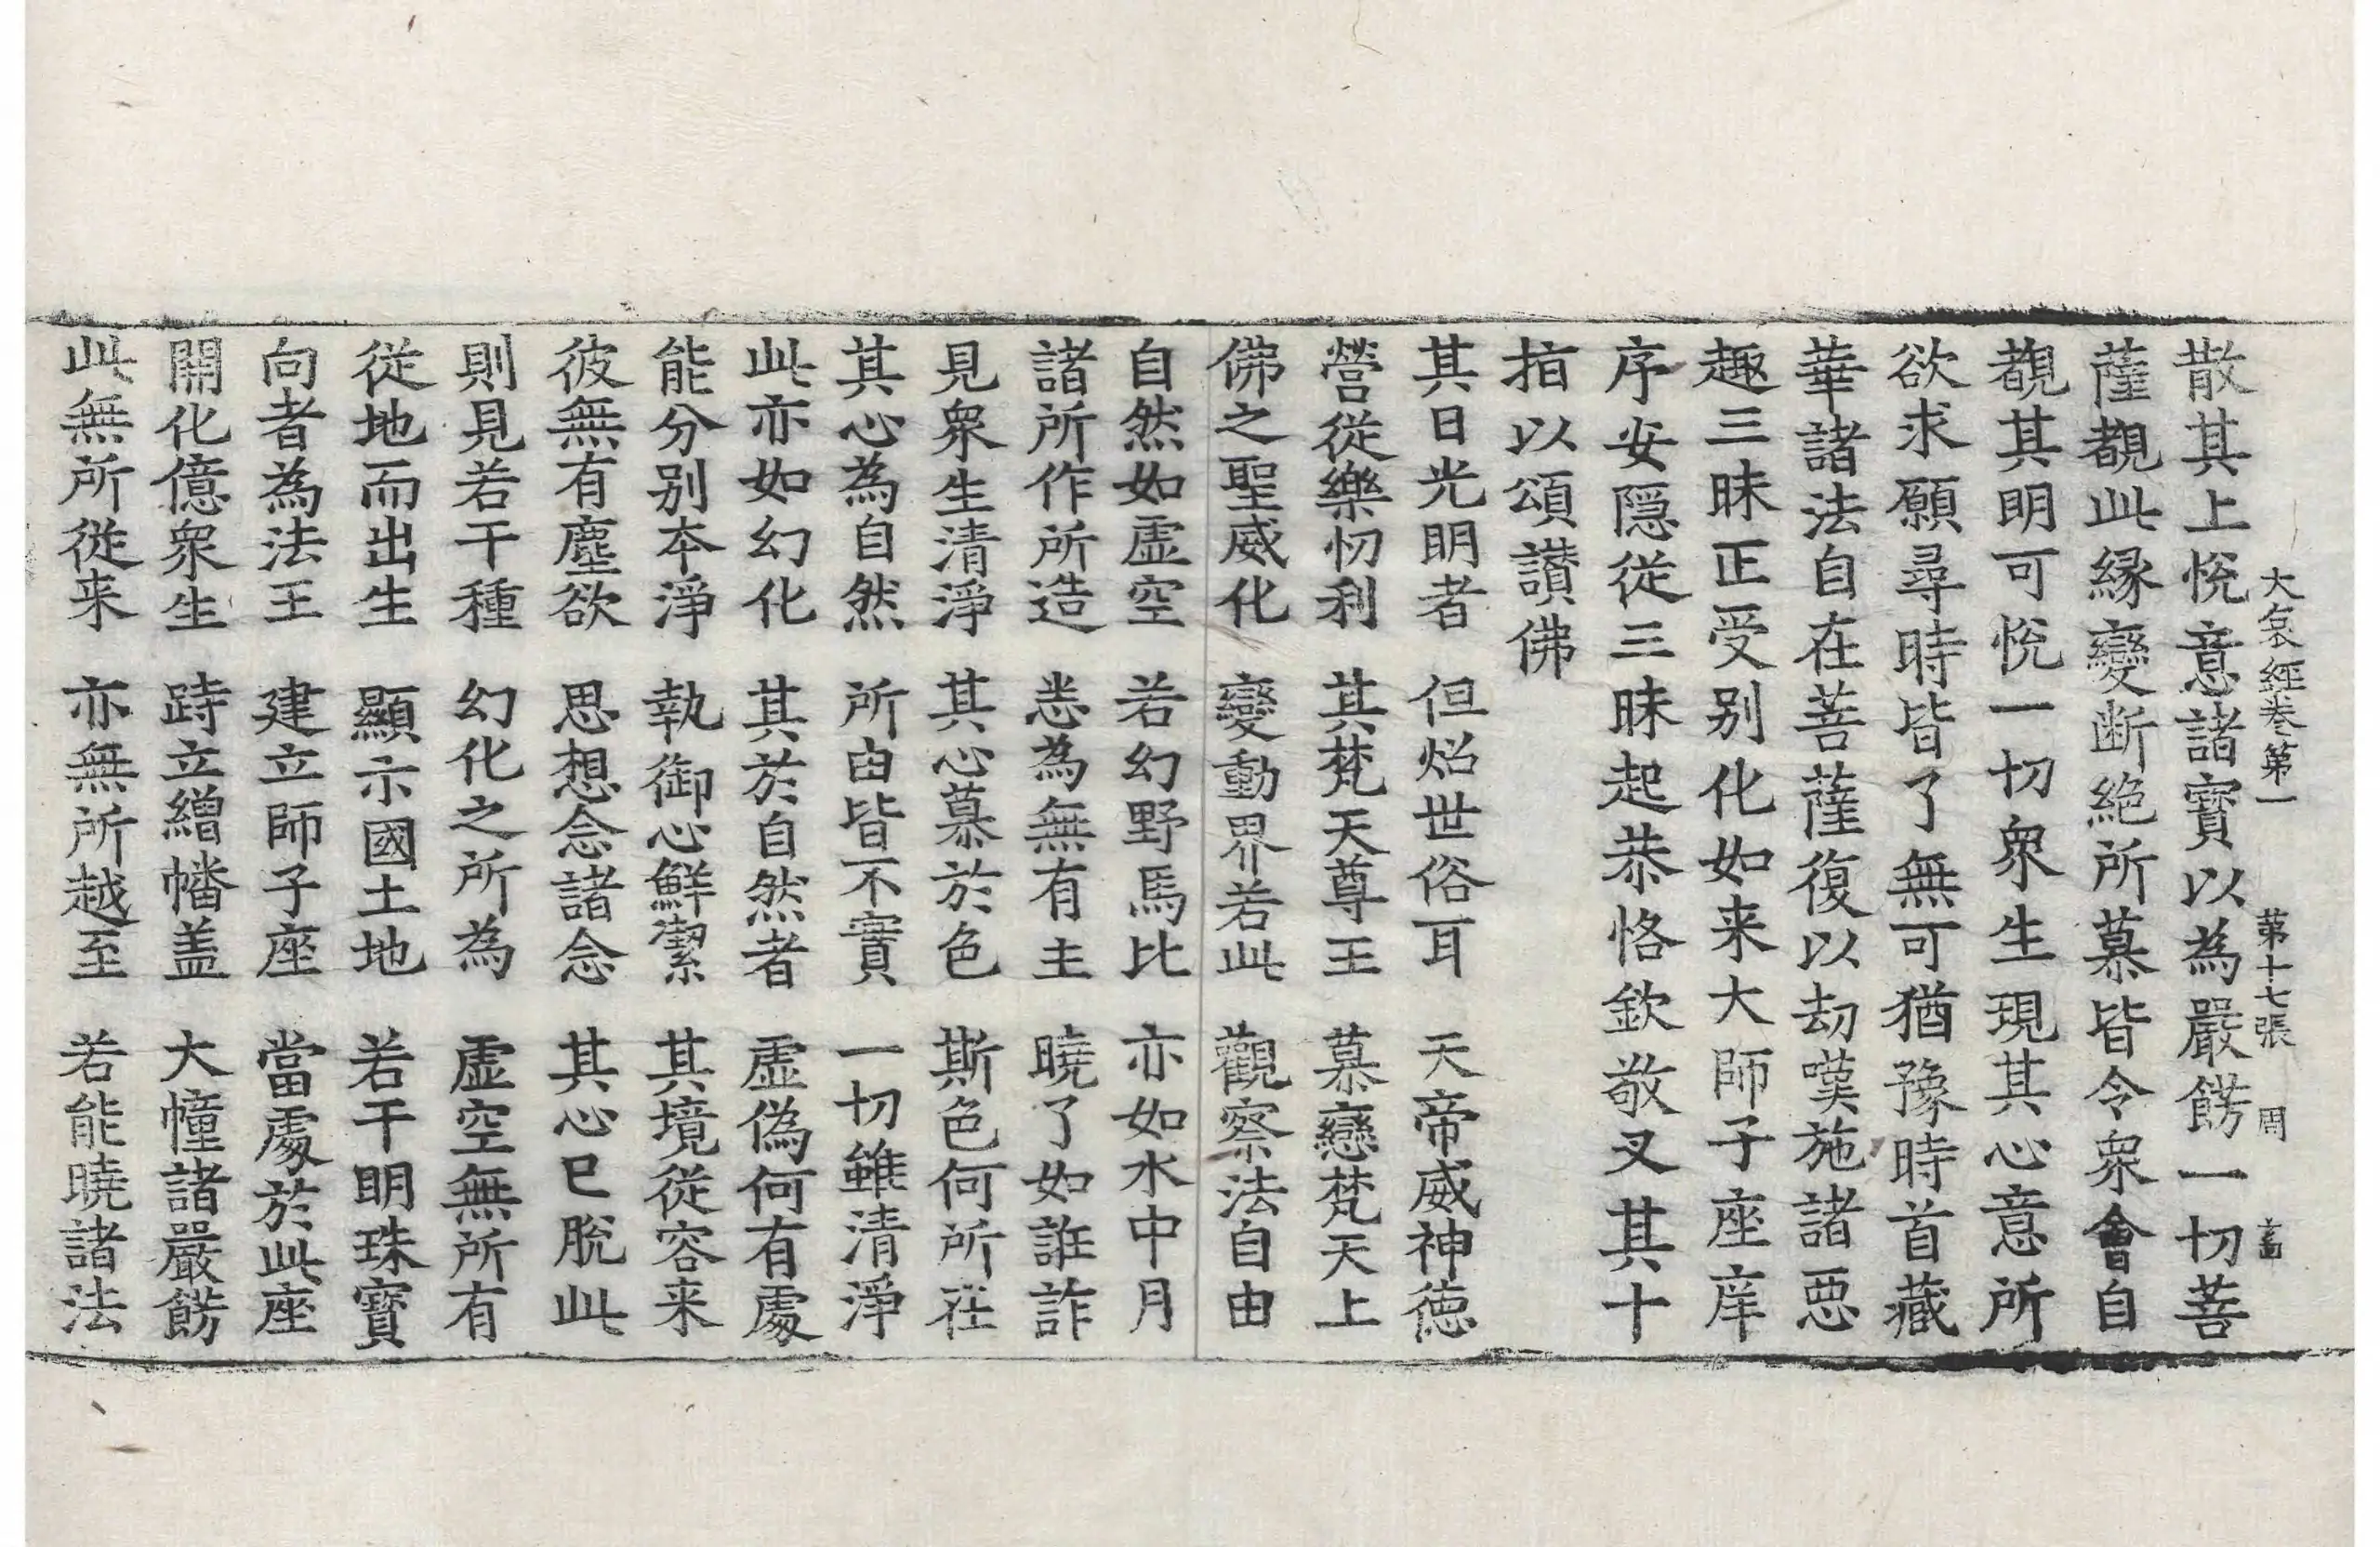 大哀經卷第一 第十七張 周
散其上悅意諸寶以為嚴餝一切菩
薩覩此緣變断絕所慕皆令衆會自
覩其明可悅一切衆生現其心意所
欲求願尋時皆了無可猶豫時首藏
華諸法自在菩薩復以劫嘆施諸惡
趣三昧正受别化如来大師子座庠
序安隱從三昧起恭恪欽敬叉其十
指以頌讚佛
其日光明者 但炤世俗耳 天帝威神德
營從樂忉利 其梵天尊王 慕戀梵天上
佛之聖威化 變動界若此 觀察法自由
自然如虛空 若幻野馬比 亦如水中月
諸所作所造 悉為無有主 曉了如誑詐
見衆生清淨 其心慕於色 斯色何所在
其心為自然 所由皆不實 一切雖清淨
此亦如幻化 其於自然者 虛偽何有處
能分别本淨 執御心鮮潔 其境從容来
彼無有塵欲 思想念諸念 其心已脫此
則見若干種 幻化之所為 虛空無所有
從地而出生 顯示國土地 若干明珠寶
向者為法王 建立師子座 當處於此座
開化億衆生 跱立繒幡盖 大幢諸嚴餝
此無所從来 亦無所越至 若能曉諸法